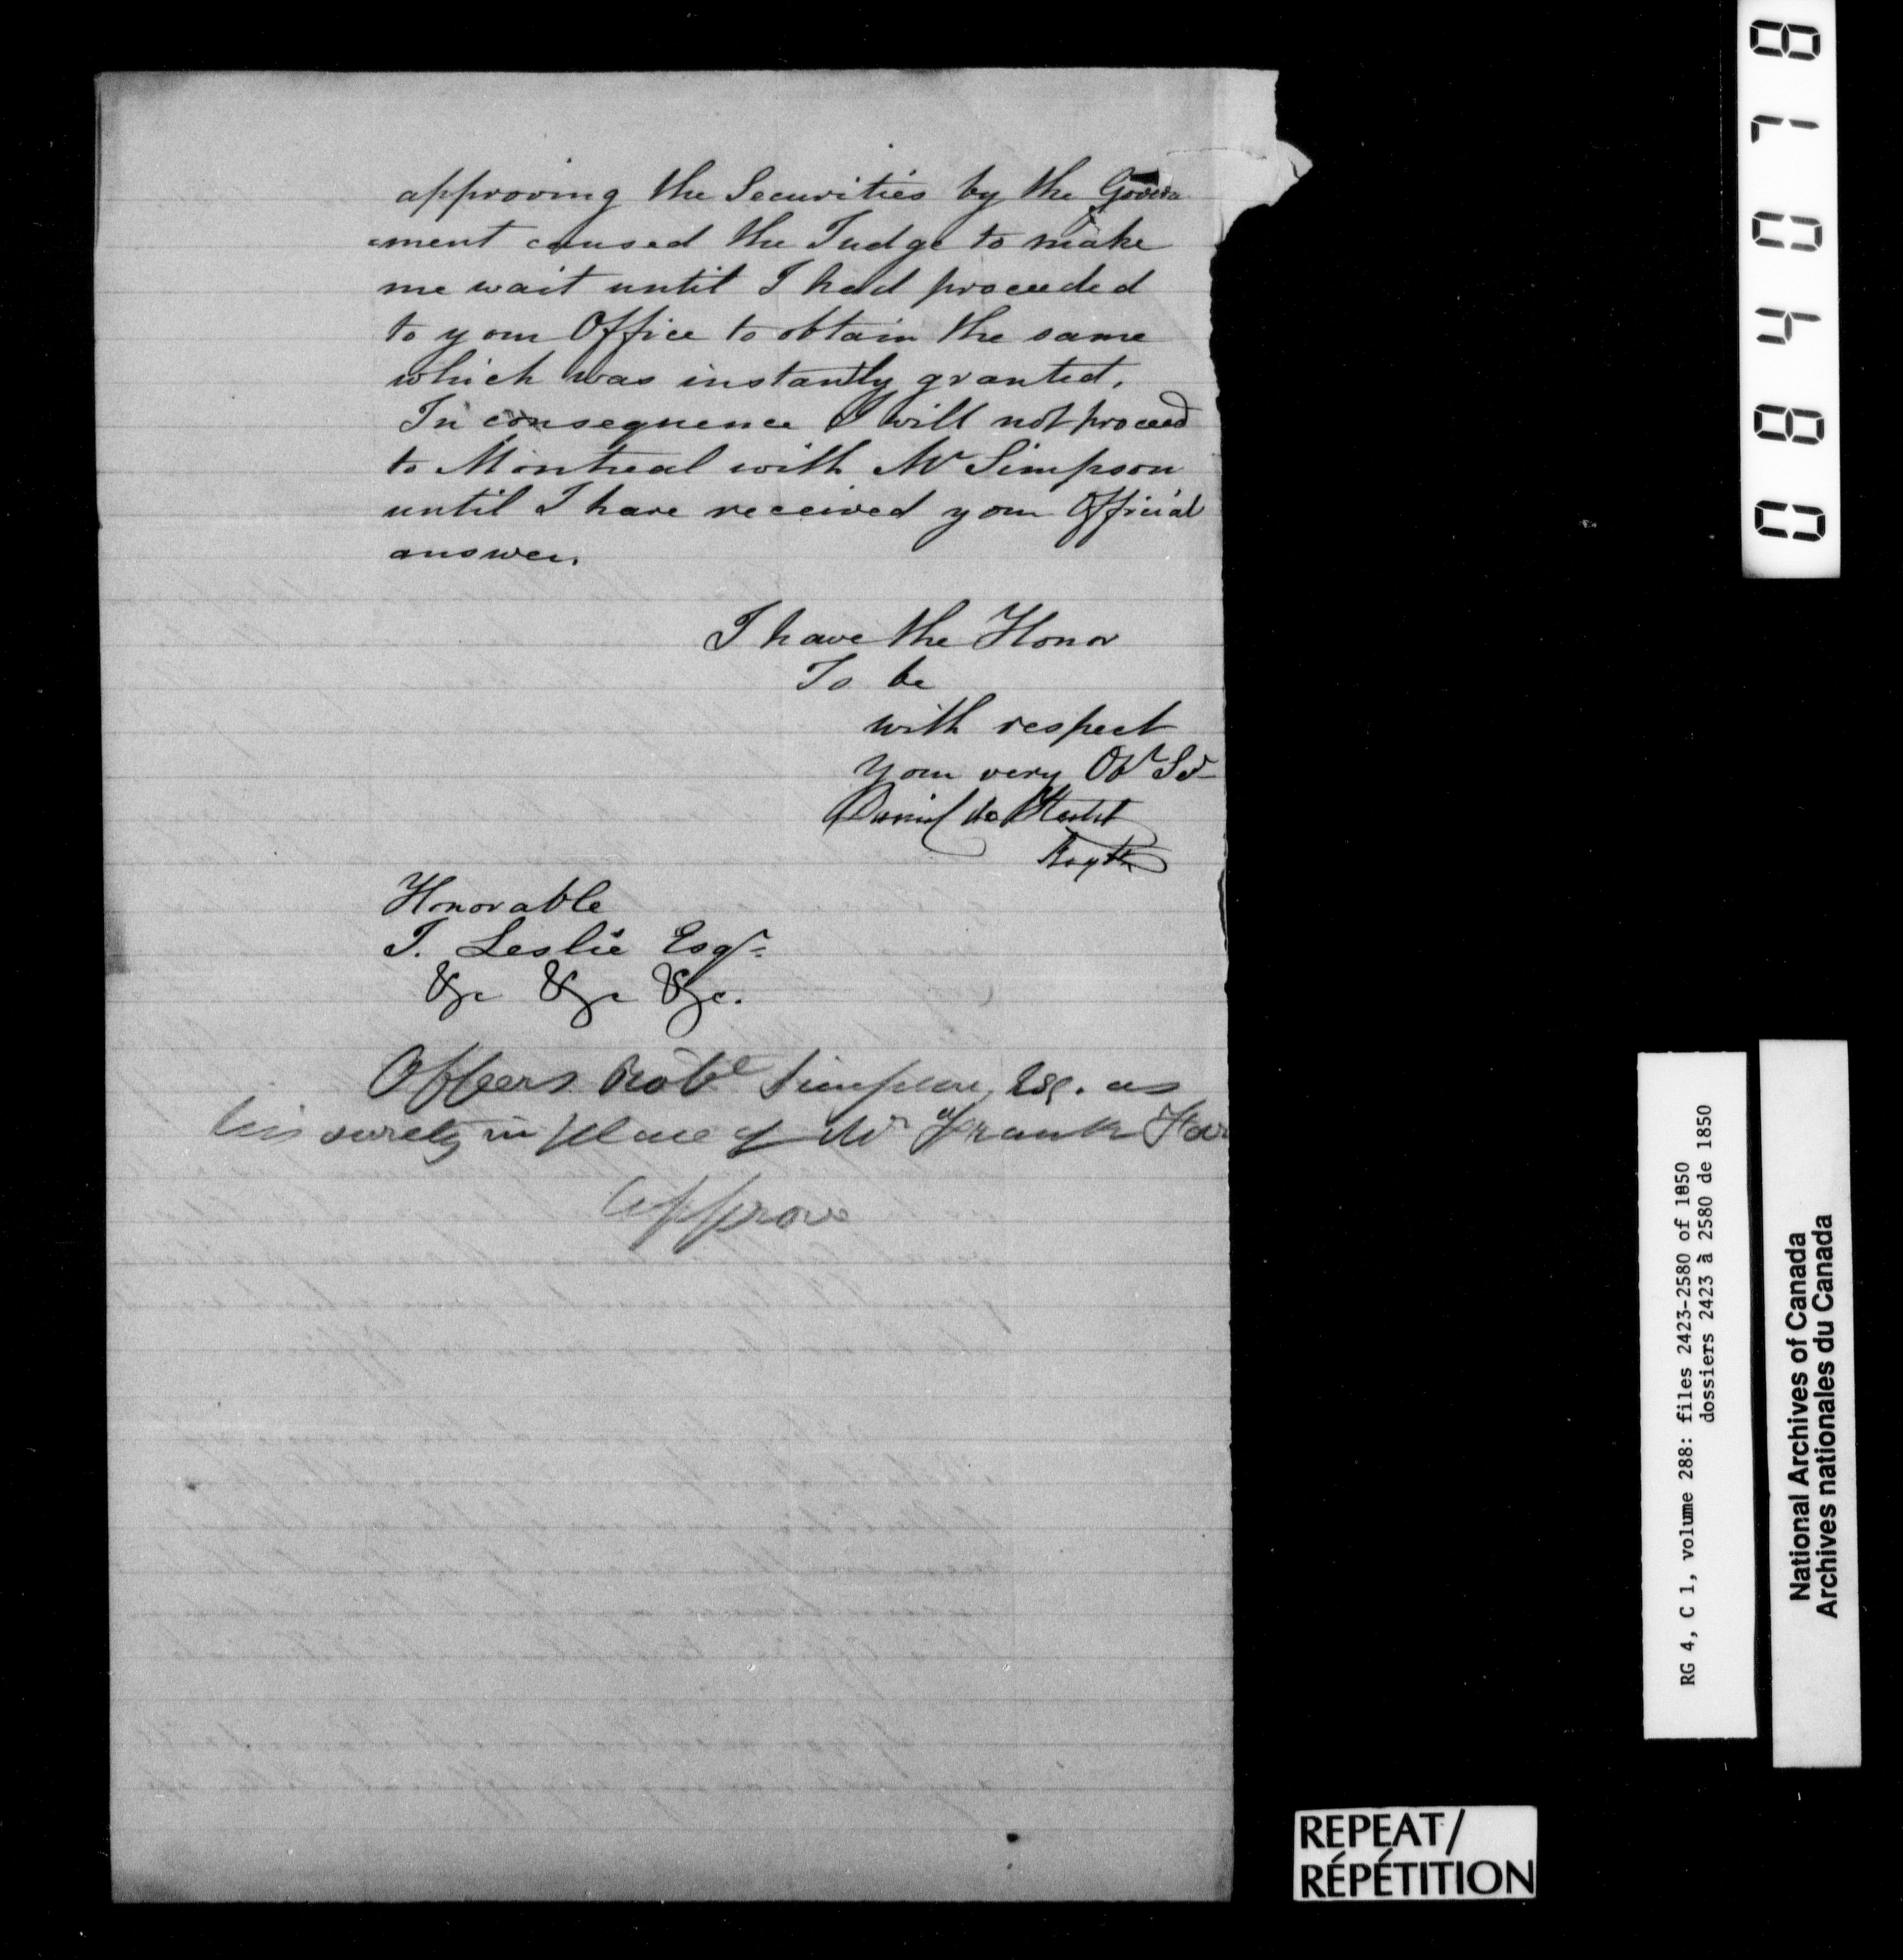 approving the Securities by the Govern
-ment caused the Judge to make
me wait until I had proceeded
to your Office to obtain the same
which was instantly granted.
In consequence I will not proceed
to Montreal with Mr Simpson
until I have received your Official
answer.
I have the Honor
To be
with respect
your very Obt St
Daniel de
Honorable
J. Leslie Esqr.
&c &c &c.
Offers Robt Simpson, Esq. as
his surety in place of Mr Frank
Approve
084078
RG 4, C 1, volume 288: files 2423-2580 of 1850
dossiers 2423 à 2580 de 1850
National Archives of Canada
Archives nationales du Canada
REPEAT/
RÉPÉTITION